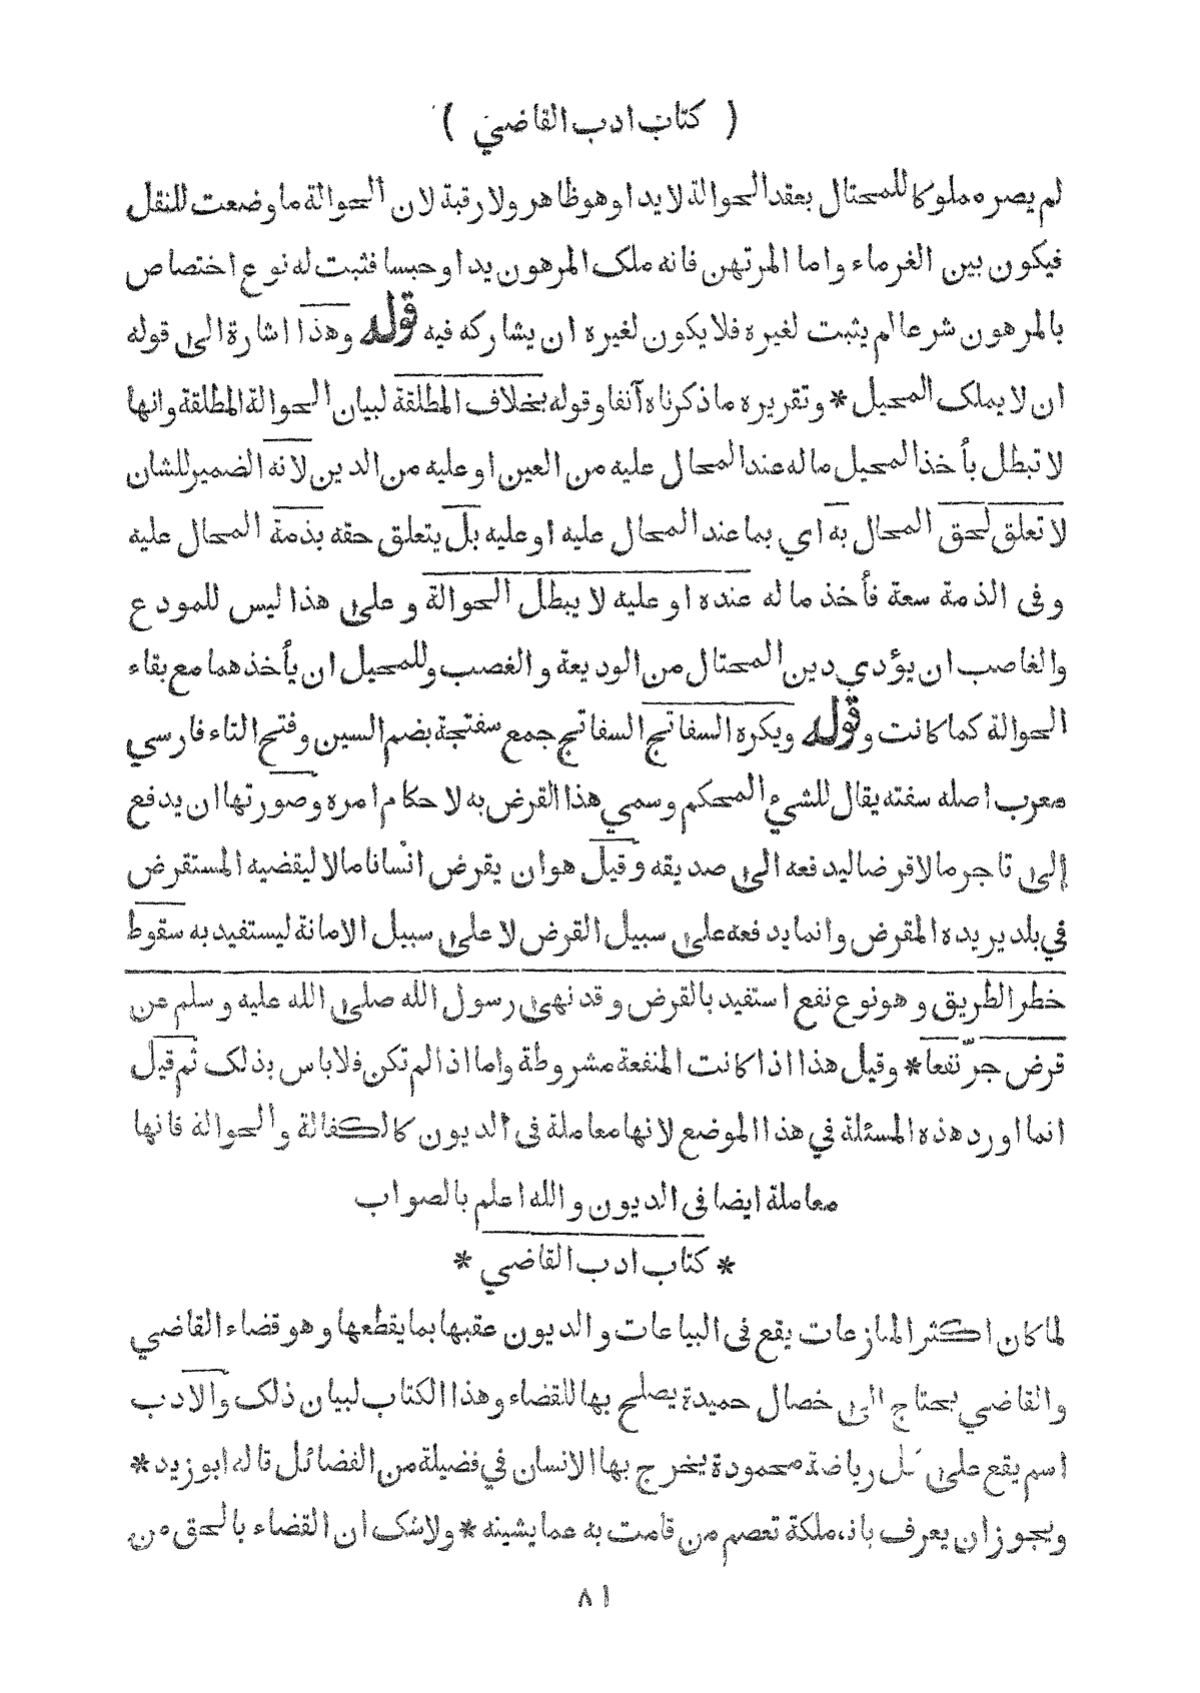 ( كتاب ادب القاضي )
لم يصره ملوكا للمحتال بعقد الحوالة لا يدا وهو ظاهر ولا رقبة لان الحوالة ما وضعت للنقل
فيكون بين الغرماء واما المرتهن فانه ملك المرهون يدا وحبسا فثبت له نوع اختصاص
بالمرهون شرعا لم يثبت لغيره فلا يكون لغيره ان يشاركه فيه قوله وهذا اشارة الى قوله
ان لا يملك المحيل * وتقريره ما ذكرناه آنفا وقوله بخلاف المطلقة لبيان الحوالة المطلقة وانها
لا تبطل بأخذ المحيل ما له عند المحال عليه من العين او عليه من الدين لانه الضمير للشان
لا تعلق لحق المحال به اي بما عند المحال عليه او عليه بل يتعلق حقه بذمة المحال عليه
وفى الذمة سعة فأخذ ما له عنده او عليه لا يبطل الحوالة و على هذا ليس للمودع
والغاصب ان يؤدي دين المحتال من الوديعة و الغصب وللمحيل ان يأخذهما مع بقاء
الحوالة كما كانت و قوله ويكره السفاتج السفاتج جمع سفتجة بضم السين وفتح التاء فارسي
معرب اصله سفته يقال للشيء المحكم وسمي هذا القرض به لاحكام امره وصورتها ان يدفع
إلى تاجر مالا قرضا ليدفعه الى صديقه وقيل هو ان يقرض انسانا مالا ليقضيه المستقرض
في بلد يريده المقرض وانما يدفعه على سبيل القرض لا على سبيل الامانة ليستفيد به سقوط
خطر الطريق و هو نوع نفع استفيد بالقرض و قد نهى رسول الله صلى الله عليه وسلم عن
قرض جرّ نفعا * وقيل هذا اذا كانت المنفعة مشروطة واما اذا لم تكن فلا باس بذلك ثم قيل
انما اورد هذه المسئلة في هذا الموضع لانها معاملة فى الديون كالكفالة والحوالة فانها
معاملة ايضا فى الديون و الله اعلم بالصواب
* كتاب ادب القاضي *
لما كان اكثر المنازعات يقع فى البياعات و الديون عقبها بما يقطعها و هو قضاء القاضي
والقاضي يحتاج الى خصال حميدة يصلح بها للقضاء وهذا الكتاب لبيان ذلك والادب
اسم يقع على كل رياضة محمودة يخرج بها الانسان في فضيلة من الفضائل قاله ابو زيد *
ويجوز ان يعرف بانه ملكة تعصم من قامت به عما يشينه * ولا شك ان القضاء بالحق من
٨١